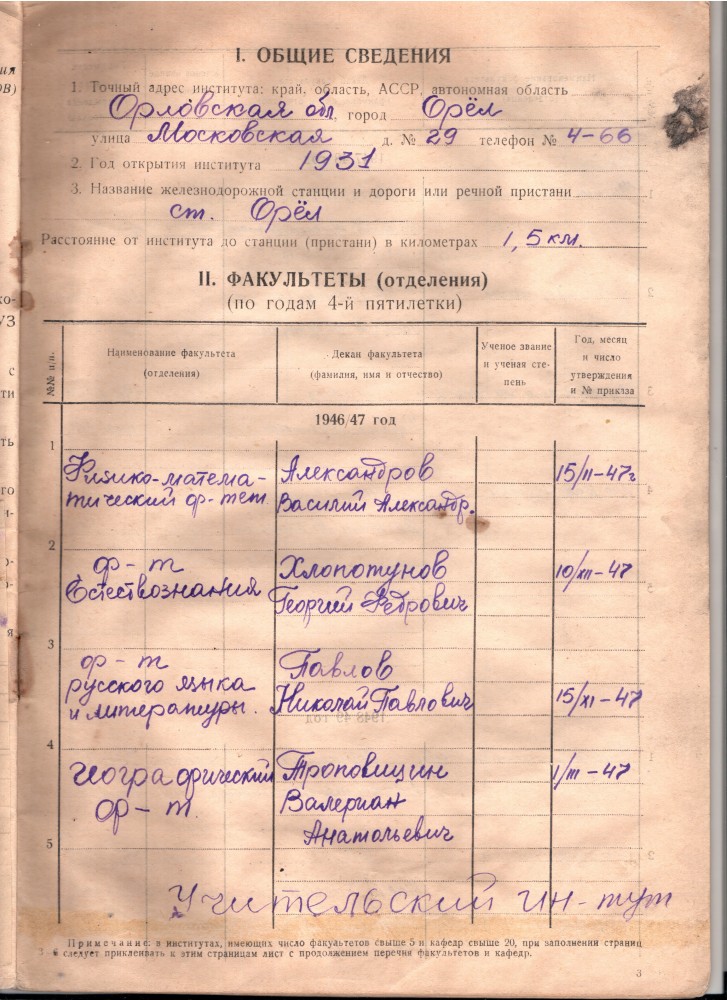 I. ОБЩИЕ СВЕДЕНИЯ
1. Точный адрес института: край, область, АССР, автономная область
Орловская обл. город Орёл
улица Московская д. № 29 телефон № 4-66
2. Год открытия института 1931
3. Название железнодорожной станции и дороги или речной пристани
ст. Орёл
Расстояние от института до станции (пристани) в километрах 1,5 км.
II. ФАКУЛЬТЕТЫ (отделения)
(по годам 4-й пятилетки)
№№ п/п.
Наименование факультета
(отделения)
Декан факультета
(фамилия, имя и отчество)
Ученое звание
и ученая сте-
пень
Год, месяц
и число
утверждения
и № приказа
1946/47 год
1
Физико-матема- Александров 15/II-47г
тический ф-тет Василий Александр.
2
ф-т Хлопотунов 10/XII-47
Естествознания Георгий
3
ф-т Павлов
русского языка Николай Павлович 15/XI-47
и литературы.
4
географический 1/III-47
ф-т Валериан
Анатольевич
5
Учительский ин-тут
Примечание: в институтах, имеющих число факультетов свыше 5 и кафедр свыше 20, при заполнении страниц
3-й следует приклеивать к этим страницам лист с продолжением перечня факультетов и кафедр.
3